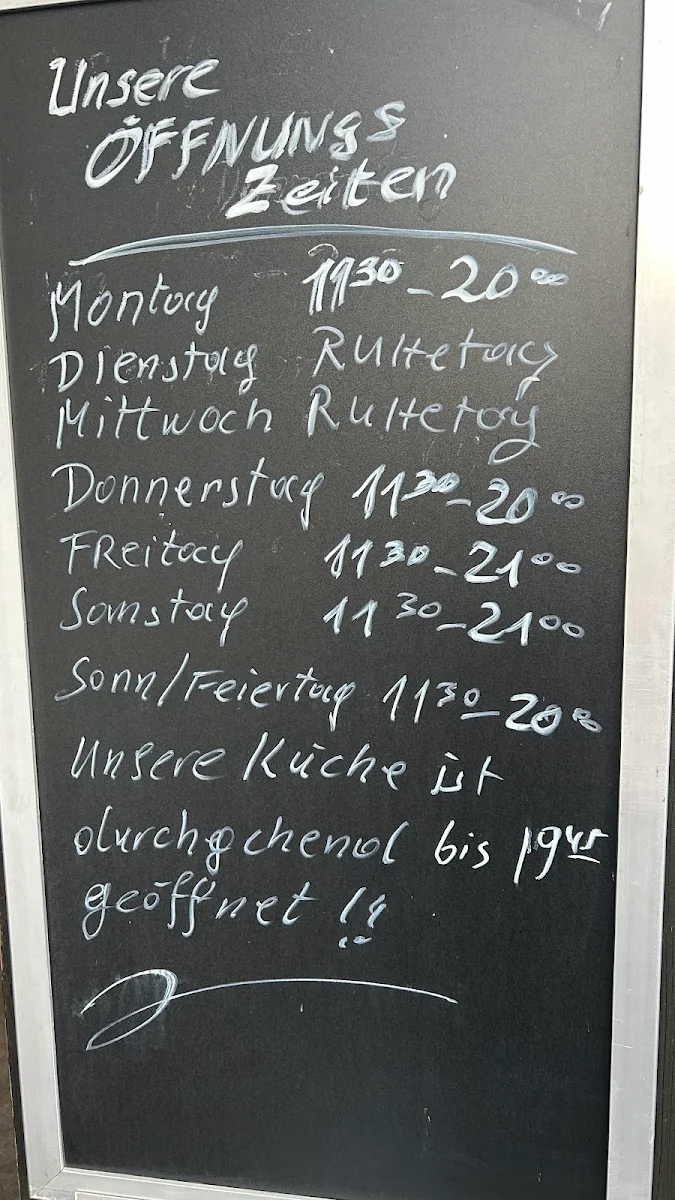 Unsere
ÖFFNUNGS
Zeiten
Montag 11³⁰ - 20⁰⁰
Dienstag Ruhetag
Mittwoch Ruhetag
Donnerstag 11³⁰ - 20⁰⁰
Freitag 11³⁰ - 21⁰⁰
Samstag 11³⁰ - 21⁰⁰
Sonn/Feiertag 11³⁰ - 20⁰⁰
Unsere Küche ist
durchgehend bis 19⁴⁵
geöffnet !!